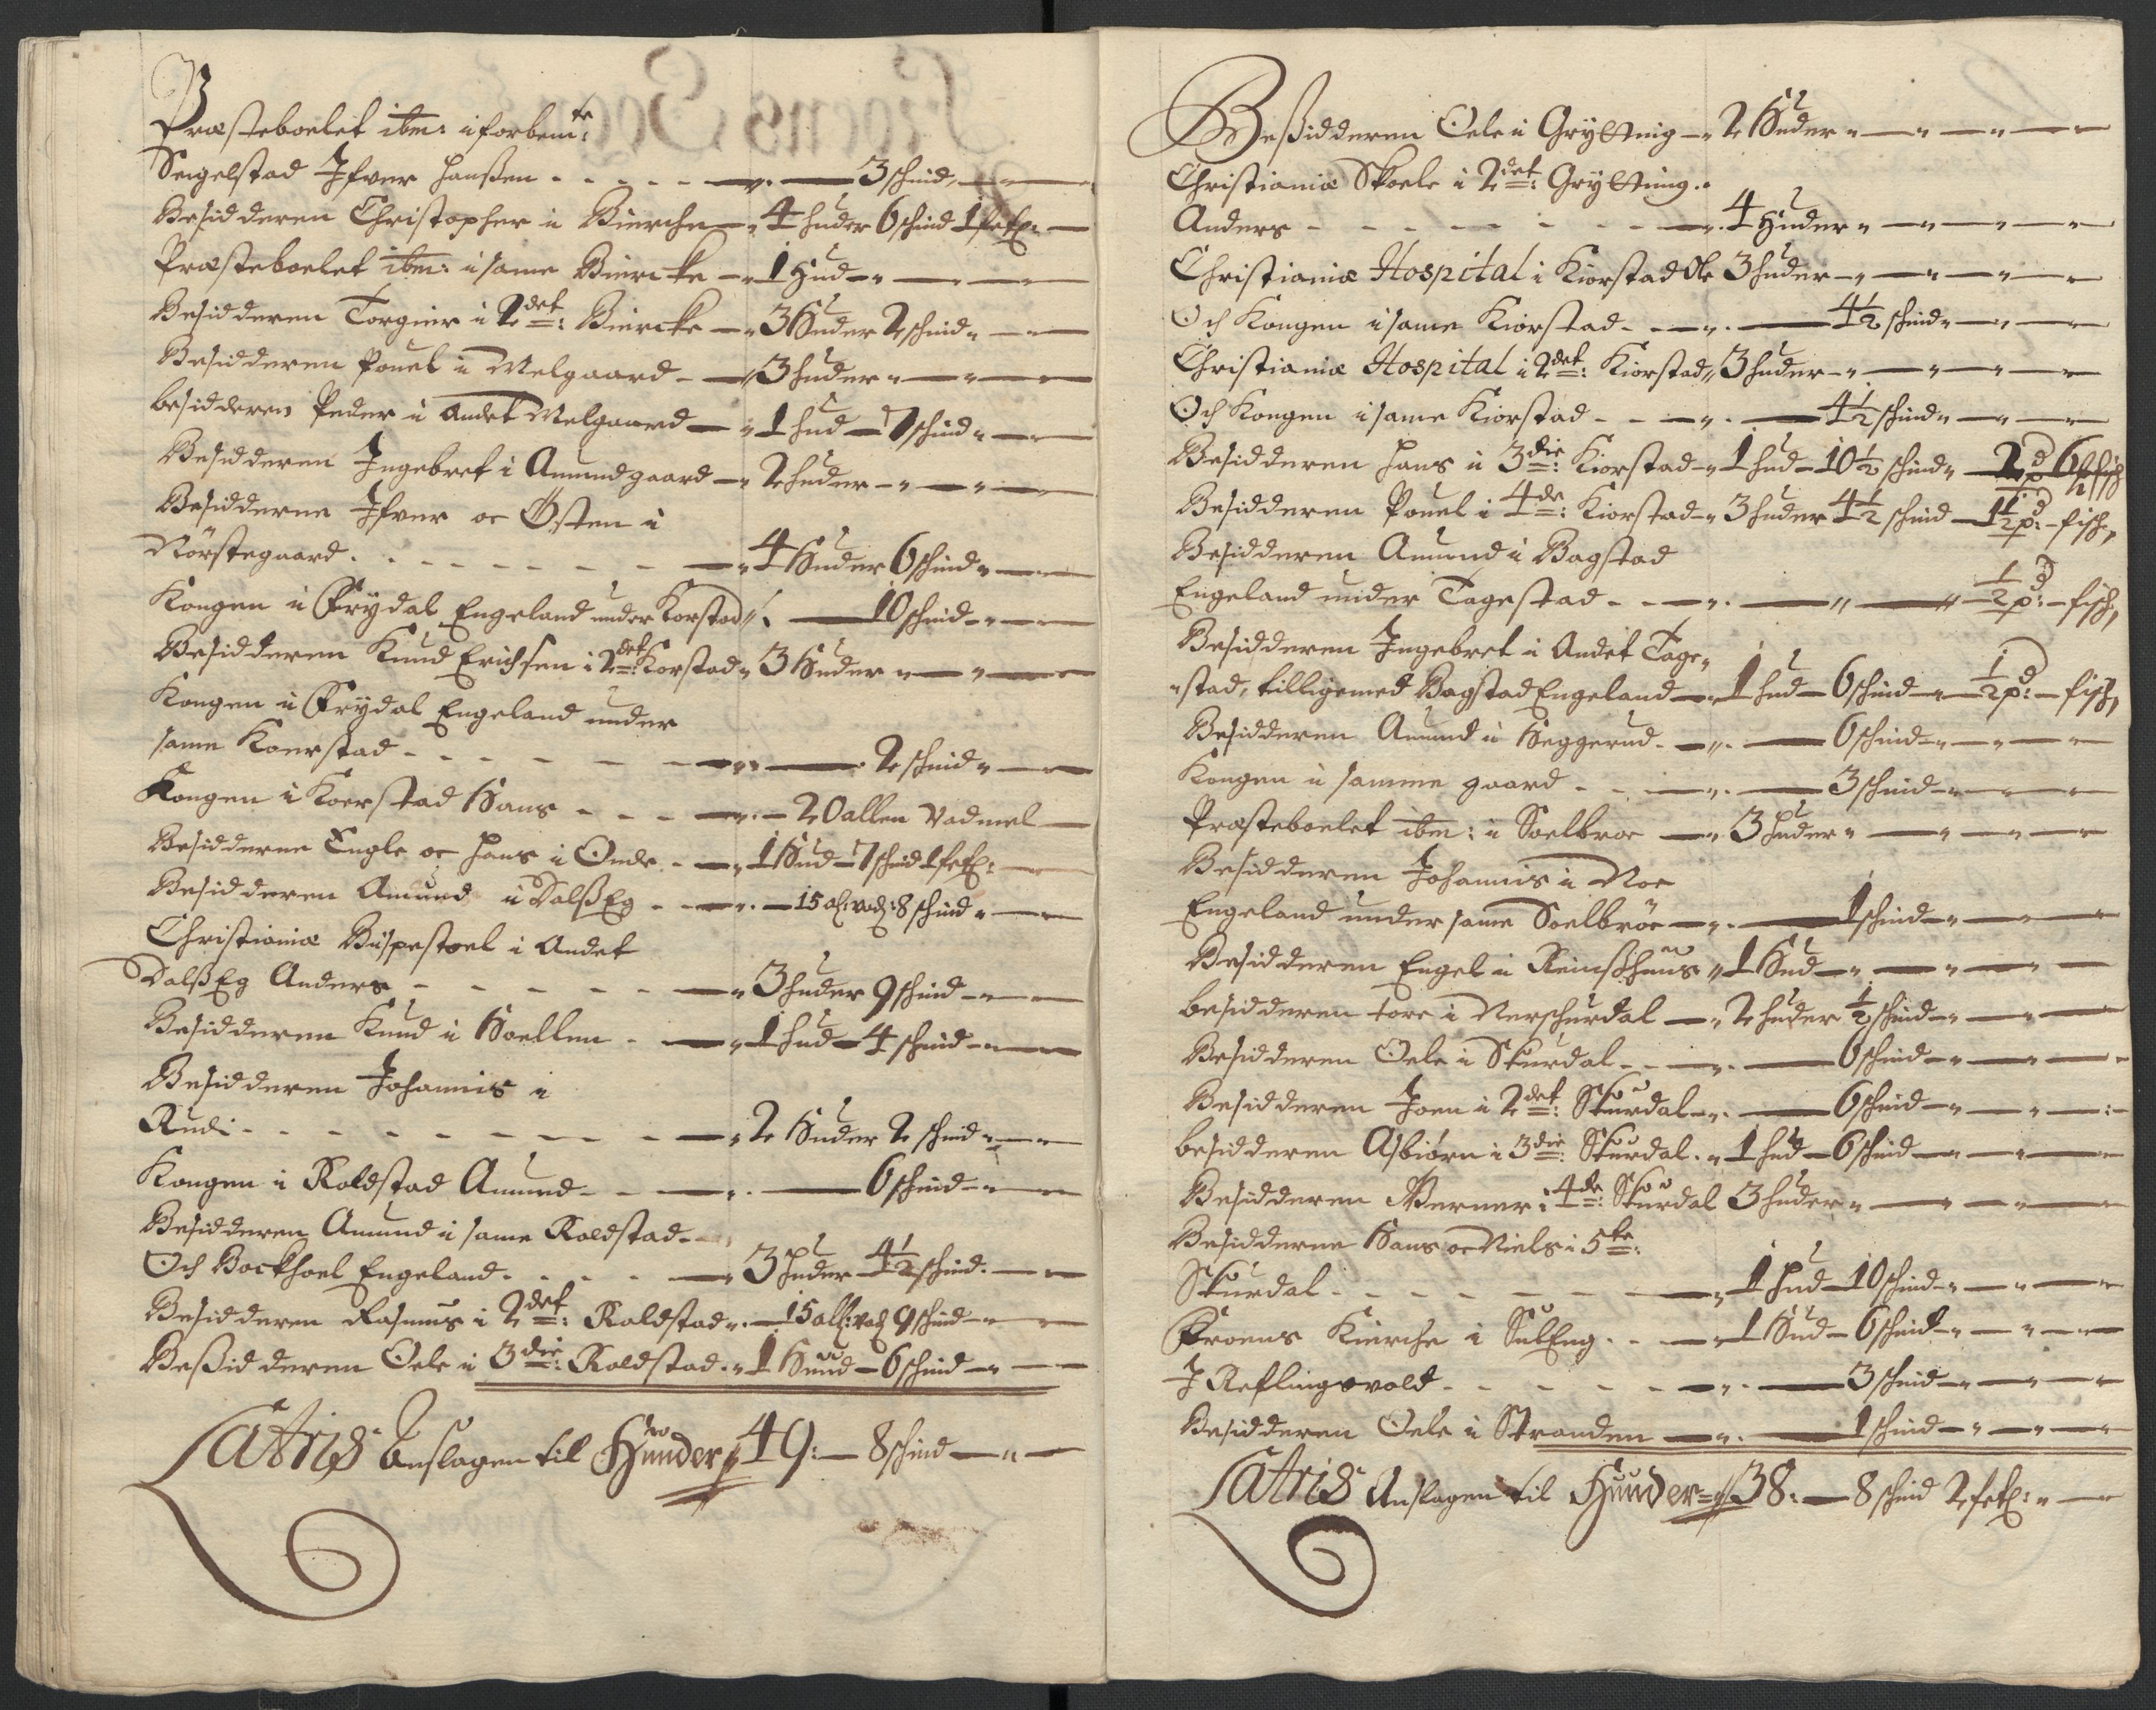 Præsteboelet ibm: i forbemte:
Seigelstad Ifver Hanßen - - - - - 3 schind
Besidderen Christopher i Bierche - 4 huder 6 schind 1 fetl:
Præsteboelet ibm: i same Biercke - 1 Hud
Besidderen Torgier i 2det: Biercke - 3 Huder 2 schind
Besidderen Pouel i Melgaard - 3 huder
besidderen Peder i Andet Melgaard - 1 hud - 7 schind
Besidderen Ingebret i Amundgaard - 2 huder
Besidderne Ifver oc Østen i
Nörstegaard - - - 4 Huder 6 schind
Kongen i Frydal Engeland under Korstad - 10 schind
Besidderen Knud Erichsen i 2det: Korstad 3 Huder
Kongen i Frydal Engeland under
same Koerstad - - - 2 schind
Kongen i Koerstad Hans - - - 20 allen Vadmel
Besidderne Engle oc Hans i Onde - 1 Hud - 7 schind 1 fetl:
Besidderen Amund i DalßEg - - 15 al: vad: 8 schind
Christianiæ Bispestoel i Andet
DalßEg Anders - - - 3 huder 9 schind
Besidderen Knud i Hoellen - 1 hud - 4 schind
Besidderen Johannis i
Rudi - - - 2 Huder 2 schind
Kongen i Roldstad Amund - - 6 schind
Besidderen Amund i same Roldstad -
Och Bockhoel Engeland - - - 3 huder 4½ schind
Besidderen Rasmus i 2det: Roldstad - 15 all: vad 9 schind
Beßidderen Oele i 3die: Roldstad - 1 Hud - 6 schind
Latris Anslagen til Hunder 49: - 8 schind
Beßidderen Oele i Grytting - 2 Huder
Christianiæ Skoele i 2det: Grytting
Anders - - - 4 Huder
Christianiæ Hospital i Kiorstad Ole 3 huder
Och Kongen i same Kiorstad - 4½ schind
Christianiæ Hospital i 2det: Kiorstad 3 huder
Och Kongen i same Kiorstad - - 4½ schind
Besidderen Hans i 3die: Kiorstad - 1 hud - 10½ schind 2 pd 6 fisch
Besidderen Pouel i 4de: Kiorstad - 3 huder 4½ schind - 1½ pd: - fisch,
Besidderen Amund i Bagstad
Engeland under Tagestad - - ½ pd: - fisch,
Besidderen Ingebret i Andet Tage-
stad, tilligemed Bagstad Engeland - 1 hud - 6 schind - ½ pd: - fisch,
Besidderen Amund i Heggerud - 6 schind
Kongen i samme gaard - - 3 schind
Præsteboelet ibm: i Soelbroe - 3 huder
Besidderen Johannis i Moe
Engeland under same Soelbröe - 1 schind
Besidderen Engel i Reinßhuus 1 Hud
besidderen tore i Nerschurdal - 2 huder ½ schind
Besidderen Oele i Skurdal - - 6 schind
Besidderen Joen i 2det: Skurdal - 6 schind
besidderen Asbiörn i 3die: Skurdal - 1 hud - 6 schind
Besidderen Werner i 4de: Skurdal 3 huder
Besidderne Hans oc Niels i 5te:
Skurdal - - - 1 hud 10 schind
Froens Kierche i SulEng - - 1 Hud - 6 schind
I Reflingsvold - - - 3 schind
Besidderen Oele i Stranden - 1 schind
Latris Anslagen til Hunder 38: - 8 schind 2 fetl: